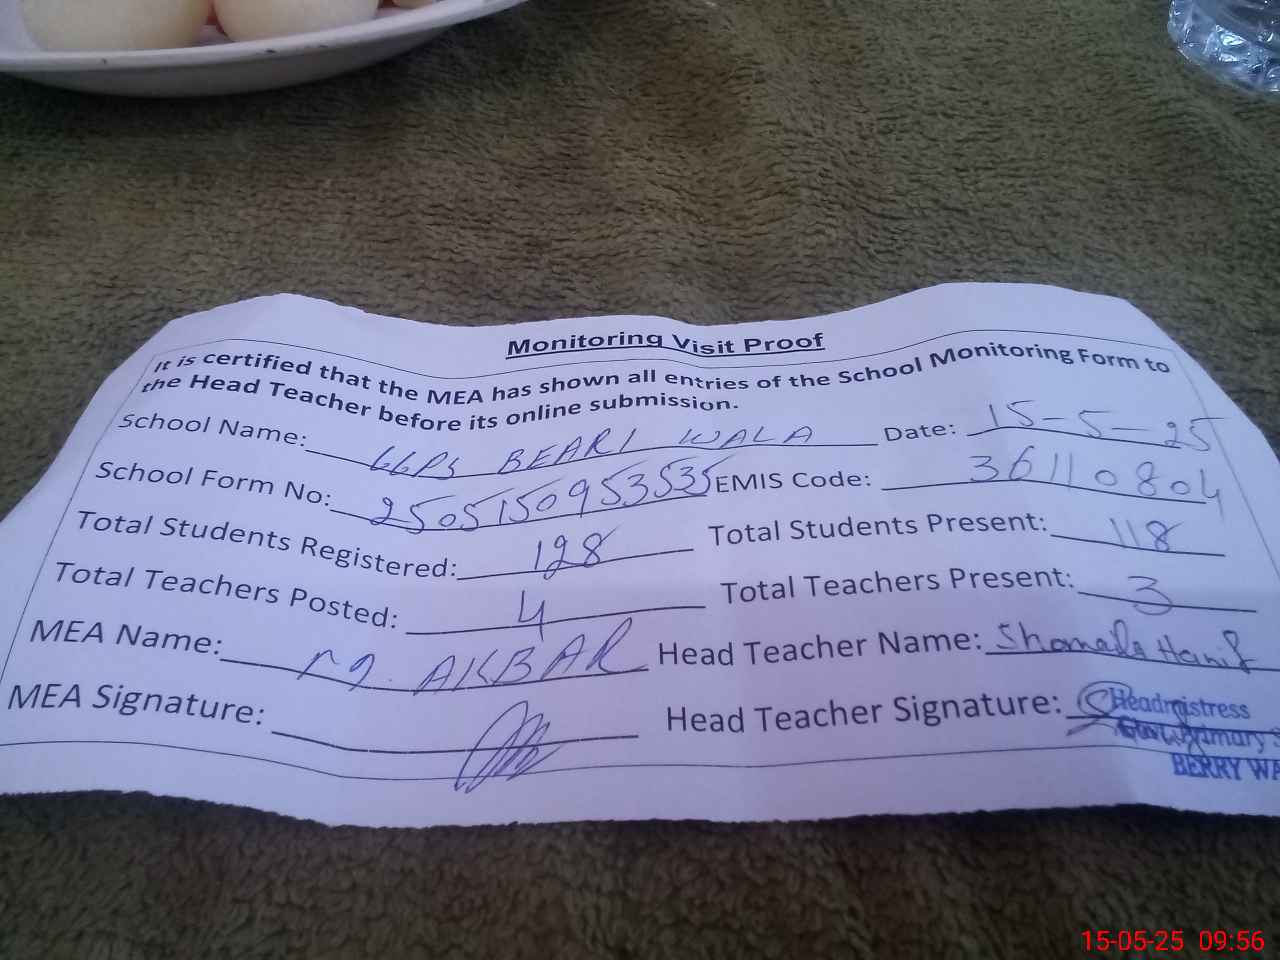 Monitoring Visit Proof
It is certified that the MEA has shown all entries of the School Monitoring Form to
the Head Teacher before its online submission.
School Name: GGPS BEARI WALA Date: 15-5-25
School Form No: 2505150953535 EMIS Code: 36110804
Total Students Registered: 128 Total Students Present: 118
Total Teachers Posted: 4 Total Teachers Present: 3
MEA Name: M. AKBAR Head Teacher Name: Shomaila Hanif
MEA Signature: Head Teacher Signature:
Headmistress
Govt. Primary S
BERRY WA
15-05-25 09:56